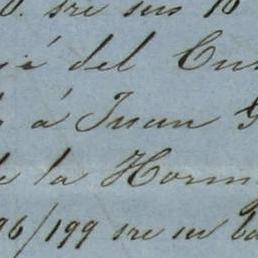 0. sre sus 10
jé del Cu
á Juan G
la Horm
96/199 sre en